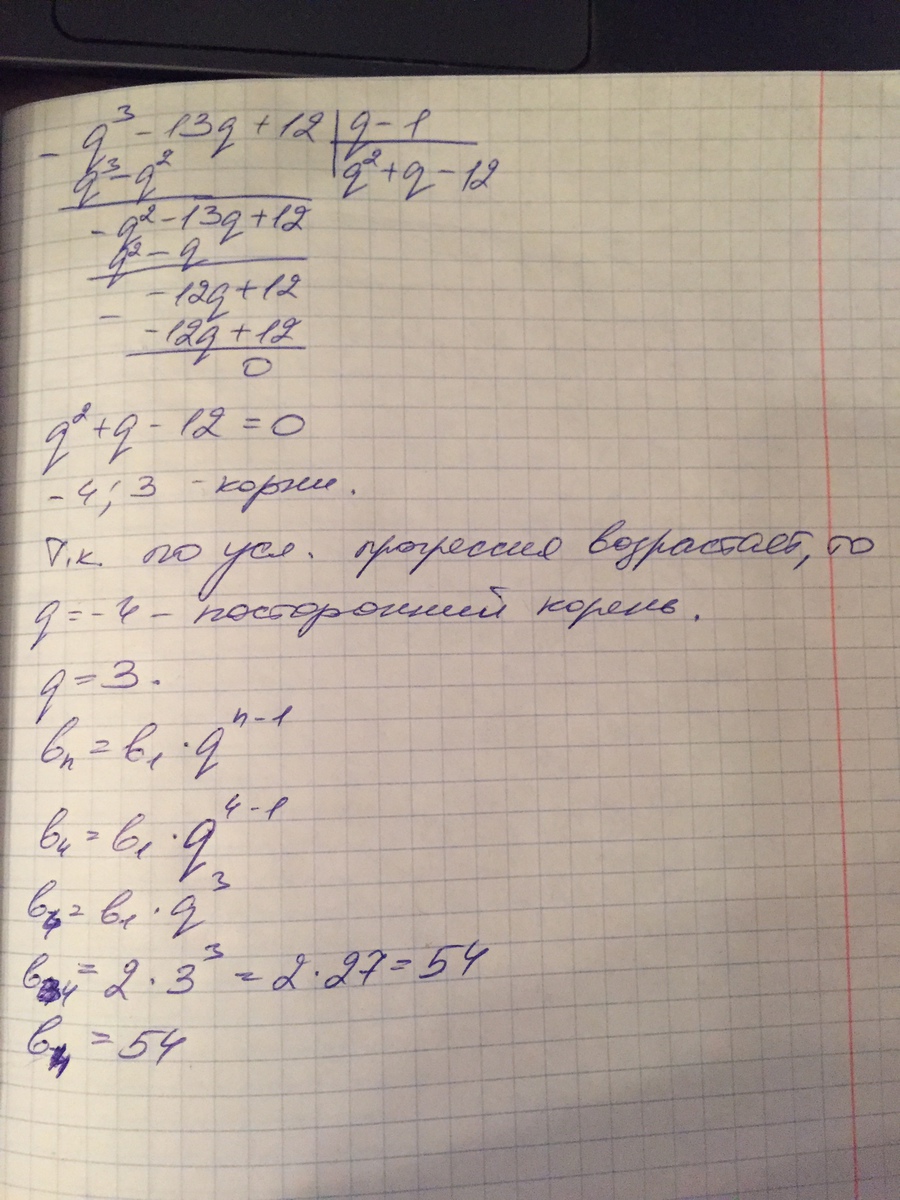 - q³ - 13q + 12 | q - 1
q³ - q² | q² + q - 12
- q² - 13q + 12
q² - q
- -12q + 12
-12q + 12
0
q² + q - 12 = 0
-4; 3 - корни.
Т.к. по усл. прогрессия возрастает, то
q = -4 - посторонний корень.
q = 3.
bₙ = b₁ · qⁿ⁻¹
b₄ = b₁ · q⁴⁻¹
b₄ = b₁ · q³
b₄ = 2 · 3³ = 2 · 27 = 54
b₄ = 54